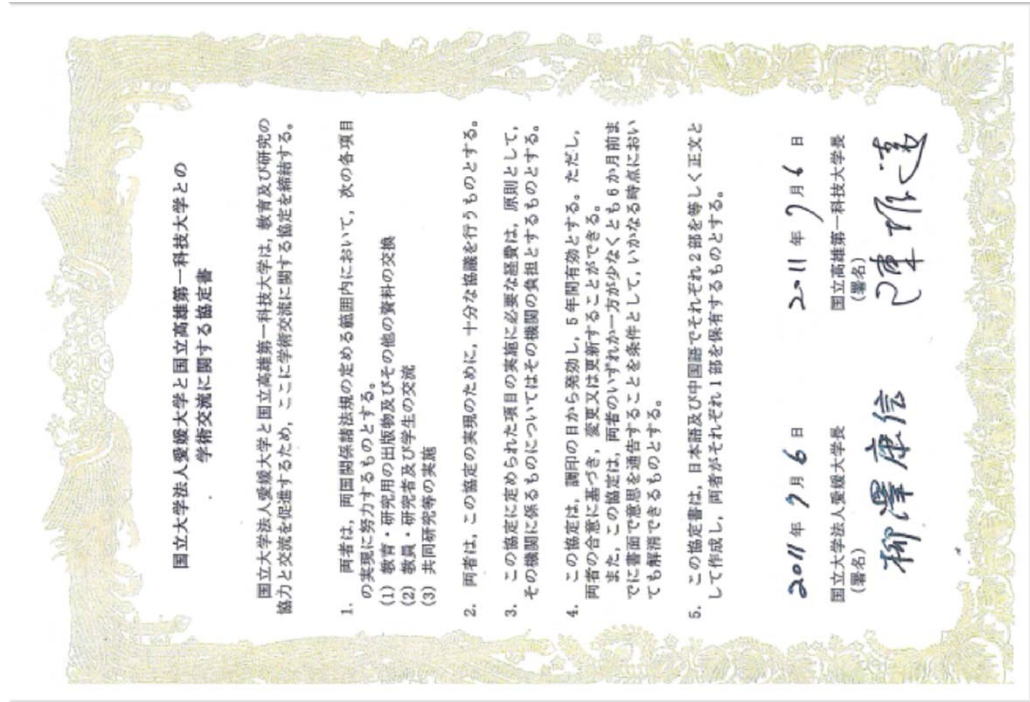 国立大学法人愛媛大学と国立高雄第一科技大学との
学術交流に関する協定書
国立大学法人愛媛大学と国立高雄第一科技大学は，教育及び研究の
協力と交流を促進するため，ここに学術交流に関する協定を締結する。
1. 両者は，両国関係諸法規の定める範囲内において，次の各項目
の実現に努力するものとする。
(1) 教育・研究用の出版物及びその他の資料の交換
(2) 教員・研究者及び学生の交流
(3) 共同研究等の実施
2. 両者は，この協定の実現のために，十分な協議を行うものとする。
3. この協定に定められた項目の実施に必要な経費は，原則として，
その機関に係るものについてはその機関の負担とするものとする。
4. この協定は，調印の日から発効し，5年間有効とする。ただし，
両者の合意に基づき，変更又は更新することができる。
また，この協定は，両者のいずれか一方が少なくとも6か月前ま
でに書面で意思を通告することを条件として，いかなる時点におい
ても解消できるものとする。
5. この協定書は，日本語及び中国語でそれぞれ2部を等しく正文と
して作成し，両者がそれぞれ1部を保有するものとする。
2011年9月6日
国立大学法人愛媛大学長
(署名)
柳澤康信
2011年9月6日
国立高雄第一科技大学長
(署名)
陳振遠